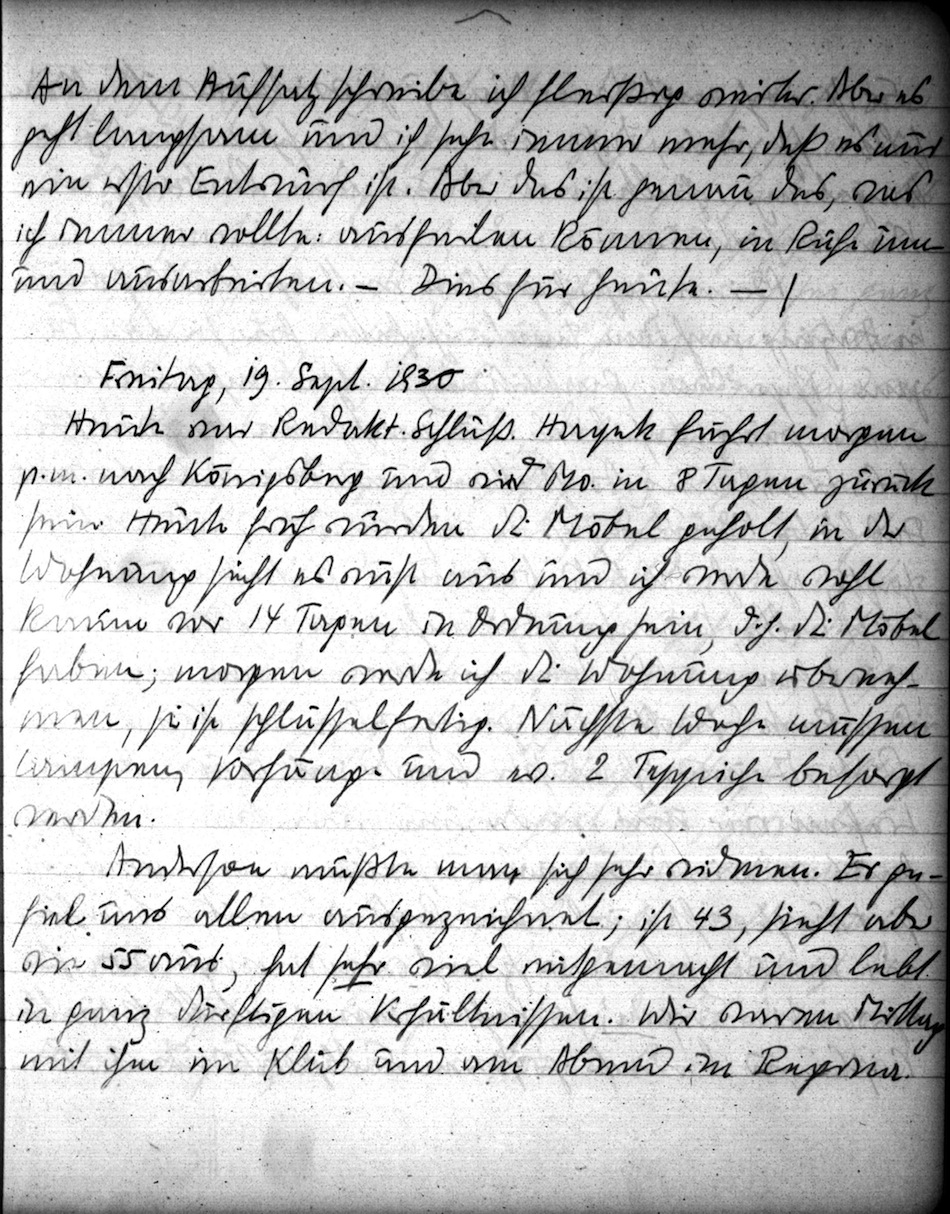 An dem Aufsatz schreibe ich fleißig weiter. Aber es
geht langsam und ich sehe immer mehr, daß es nur
ein erster Entwurf ist. Aber das ist genau das, was
ich immer wollte: ausfeilen können, in Ruhe um-
und ausarbeiten. – Dies für heute. –
Freitag, 19. Sept. 1930
Heute war Redakt. Schluß. Hayek fährt morgen
p.m. nach Königsberg und wird Mo. in 8 Tagen zurück
sein. Heute früh wurden die Möbel geholt, in der
Wohnung sieht es wüst aus und ich werde wohl
kaum vor 14 Tagen in Ordnung sein, d.h. die Möbel
haben; morgen werde ich die Wohnung überneh-
men, sie ist schlüsselfertig. Nächste Woche müssen
Lampen, Vorhänge und ev. 2 Teppiche besorgt
werden.
Anderson mußte man sich sehr widmen. Er ge-
fiel uns allen ausgezeichnet; ist 43, sieht aber
wie 55 aus, hat sehr viel mitgemacht und lebt
in ganz dürftigen Verhältnissen. Wir waren Mittag
mit ihm im Klub und am Abend im Regina.